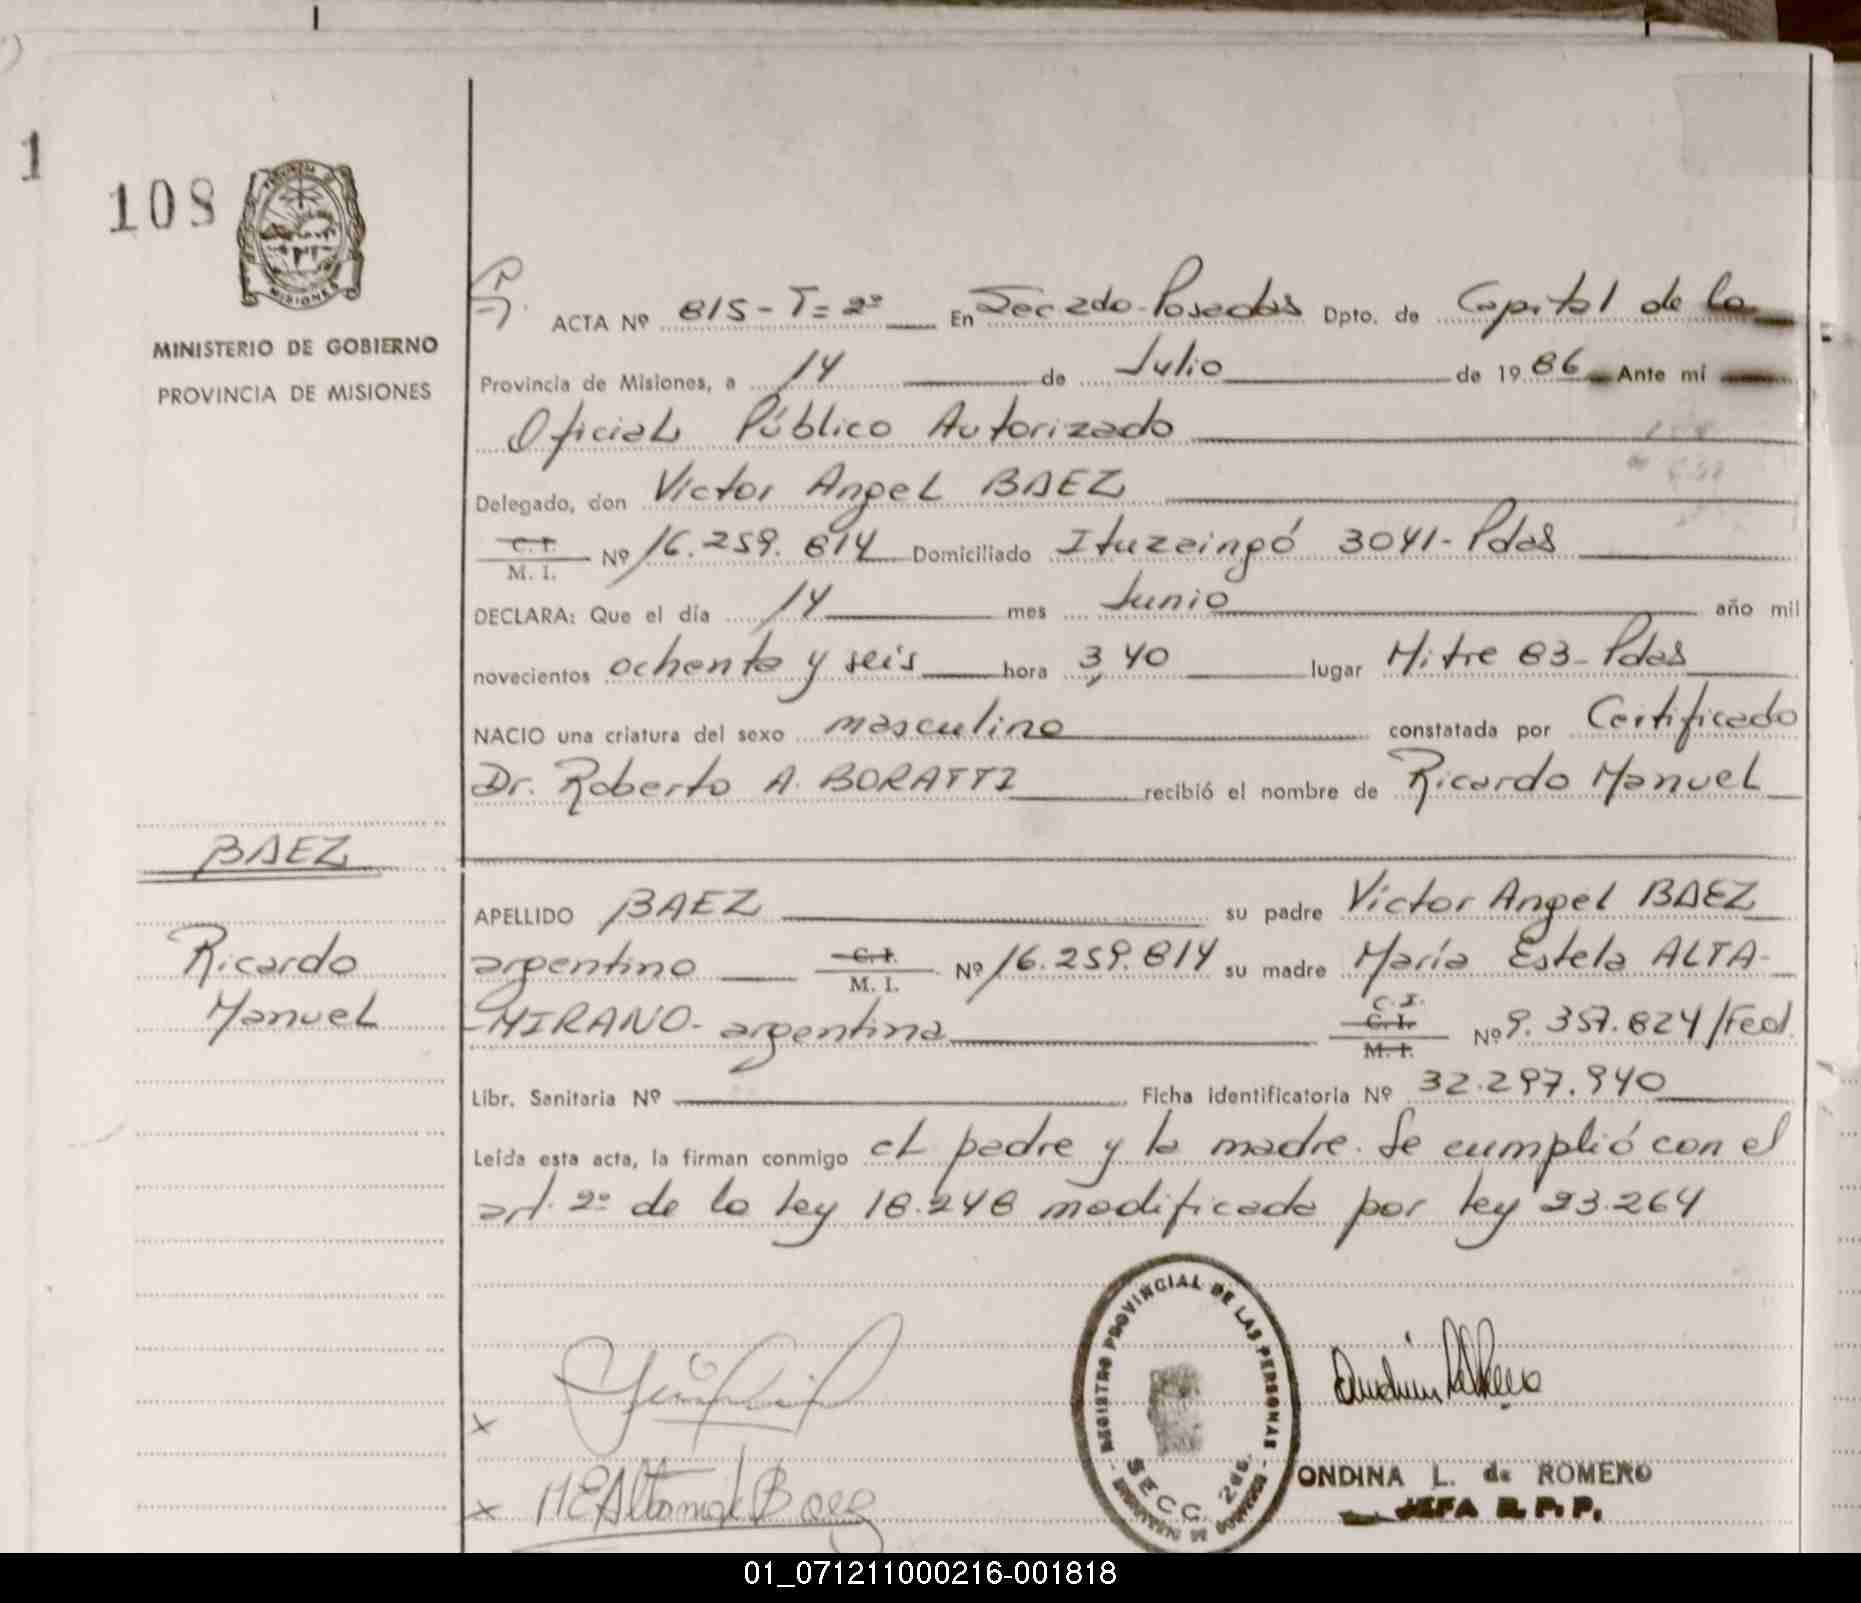 1
108
MINISTERIO DE GOBIERNO
PROVINCIA DE MISIONES
ACTA Nº 815-T=2º En Sec 2da-Posadas Dpto. de Capital de la
Provincia de Misiones, a 14 de Julio de 1986 Ante mí
Oficial Público Autorizado
Delegado, don Victor Angel BAEZ
C.I. M. I. Nº 16.259.814 Domiciliado Ituzaingó 3041-Pdas
DECLARA: Que el día 14 mes Junio año mil
novecientos ochenta y seis hora 3,40 lugar Mitre 83-Pdas
NACIO una criatura del sexo masculino constatada por Certificado
Dr. Roberto A. BORATTI recibió el nombre de Ricardo Manuel
BAEZ
Ricardo
Manuel
APELLIDO BAEZ su padre Victor Angel BAEZ
argentino C.I. M. I. Nº 16.259.814 su madre María Estela ALTA-
-MIRANO- argentina C.I. C.I. M.I. Nº 9.357.824/Fed.
Libr. Sanitaria Nº Ficha identificatoria Nº 32.297.940
Leída esta acta, la firman conmigo el padre y la madre. Se cumplió con el
art. 2º de la ley 18.248 modificada por ley 23.264
REGISTRO PROVINCIAL DE LAS PERSONAS
SECC. 2da.
x
x MEAltamirdeBaez
ONDINA L. de ROMERO
JEFA R. P. P.
01_071211000216-001818